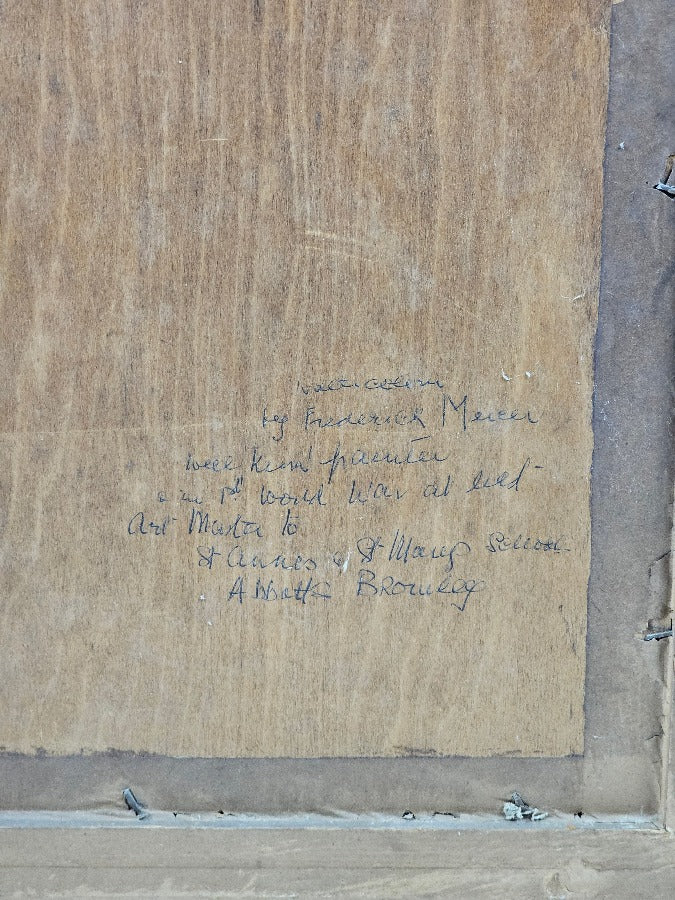 Watercolour
by Frederick Mercer
well known painter
1st World War at
Art Master to
St Annes & St Marys School
Abbotts Bromley